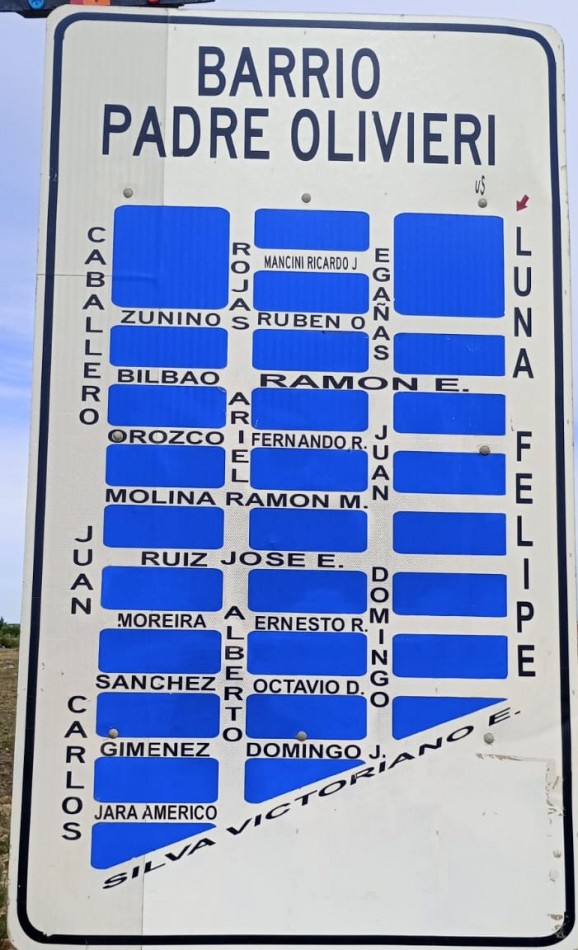 BARRIO
PADRE OLIVIERI
CABALLERO JUAN CARLOS
ROJAS ARIEL ALBERTO
EGAÑAS JUAN DOMINGO
LUNA FELIPE
MANCINI RICARDO J
ZUNINO RUBEN O
BILBAO RAMON E.
OROZCO FERNANDO R.
MOLINA RAMON M.
RUIZ JOSE E.
MOREIRA ERNESTO R.
SANCHEZ OCTAVIO D.
GIMENEZ DOMINGO J.
JARA AMERICO
SILVA VICTORIANO E.